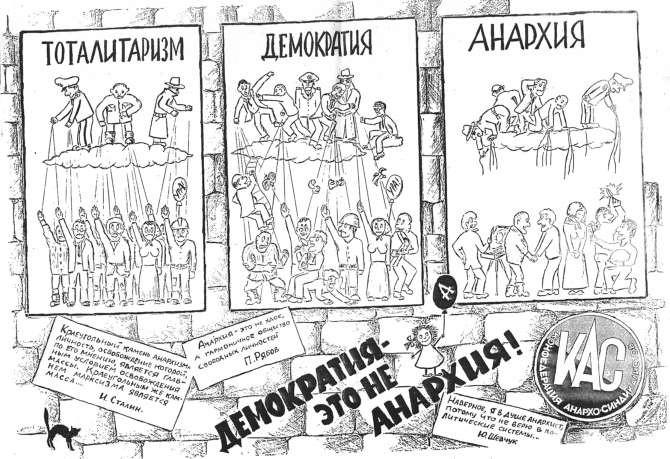 ТОТАЛИТАРИЗМ
ДЕМОКРАТИЯ
АНАРХИЯ
Краеугольный камень анархизма -
личность, освобождение которой,
по его мнению, является глав-
ным условием освобождения
массы. Краеугольным же кам-
нем марксизма является
масса...
И. Сталин.
Анархия - это не хаос,
а гармоничное общество
свободных личностей
П. Рябов
ДЕМОКРАТИЯ-
ЭТО НЕ
АНАРХИЯ!
Наверное, я в душе анархист,
потому что не верю в по-
литические системы...
Ю. Шевчук
КАС
КОНФЕДЕРАЦИЯ АНАРХО-СИНДИКАЛИСТОВ